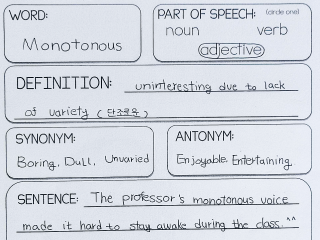 WORD:
Monotonous
PART OF SPEECH: (circle one)
noun verb
adjective
DEFINITION: uninteresting due to lack
of variety (단조로운)
SYNONYM:
Boring, Dull, Unvaried
ANTONYM:
Enjoyable, Entertaining
SENTENCE: The professor's monotonous voice
made it hard to stay awake during the class.^^